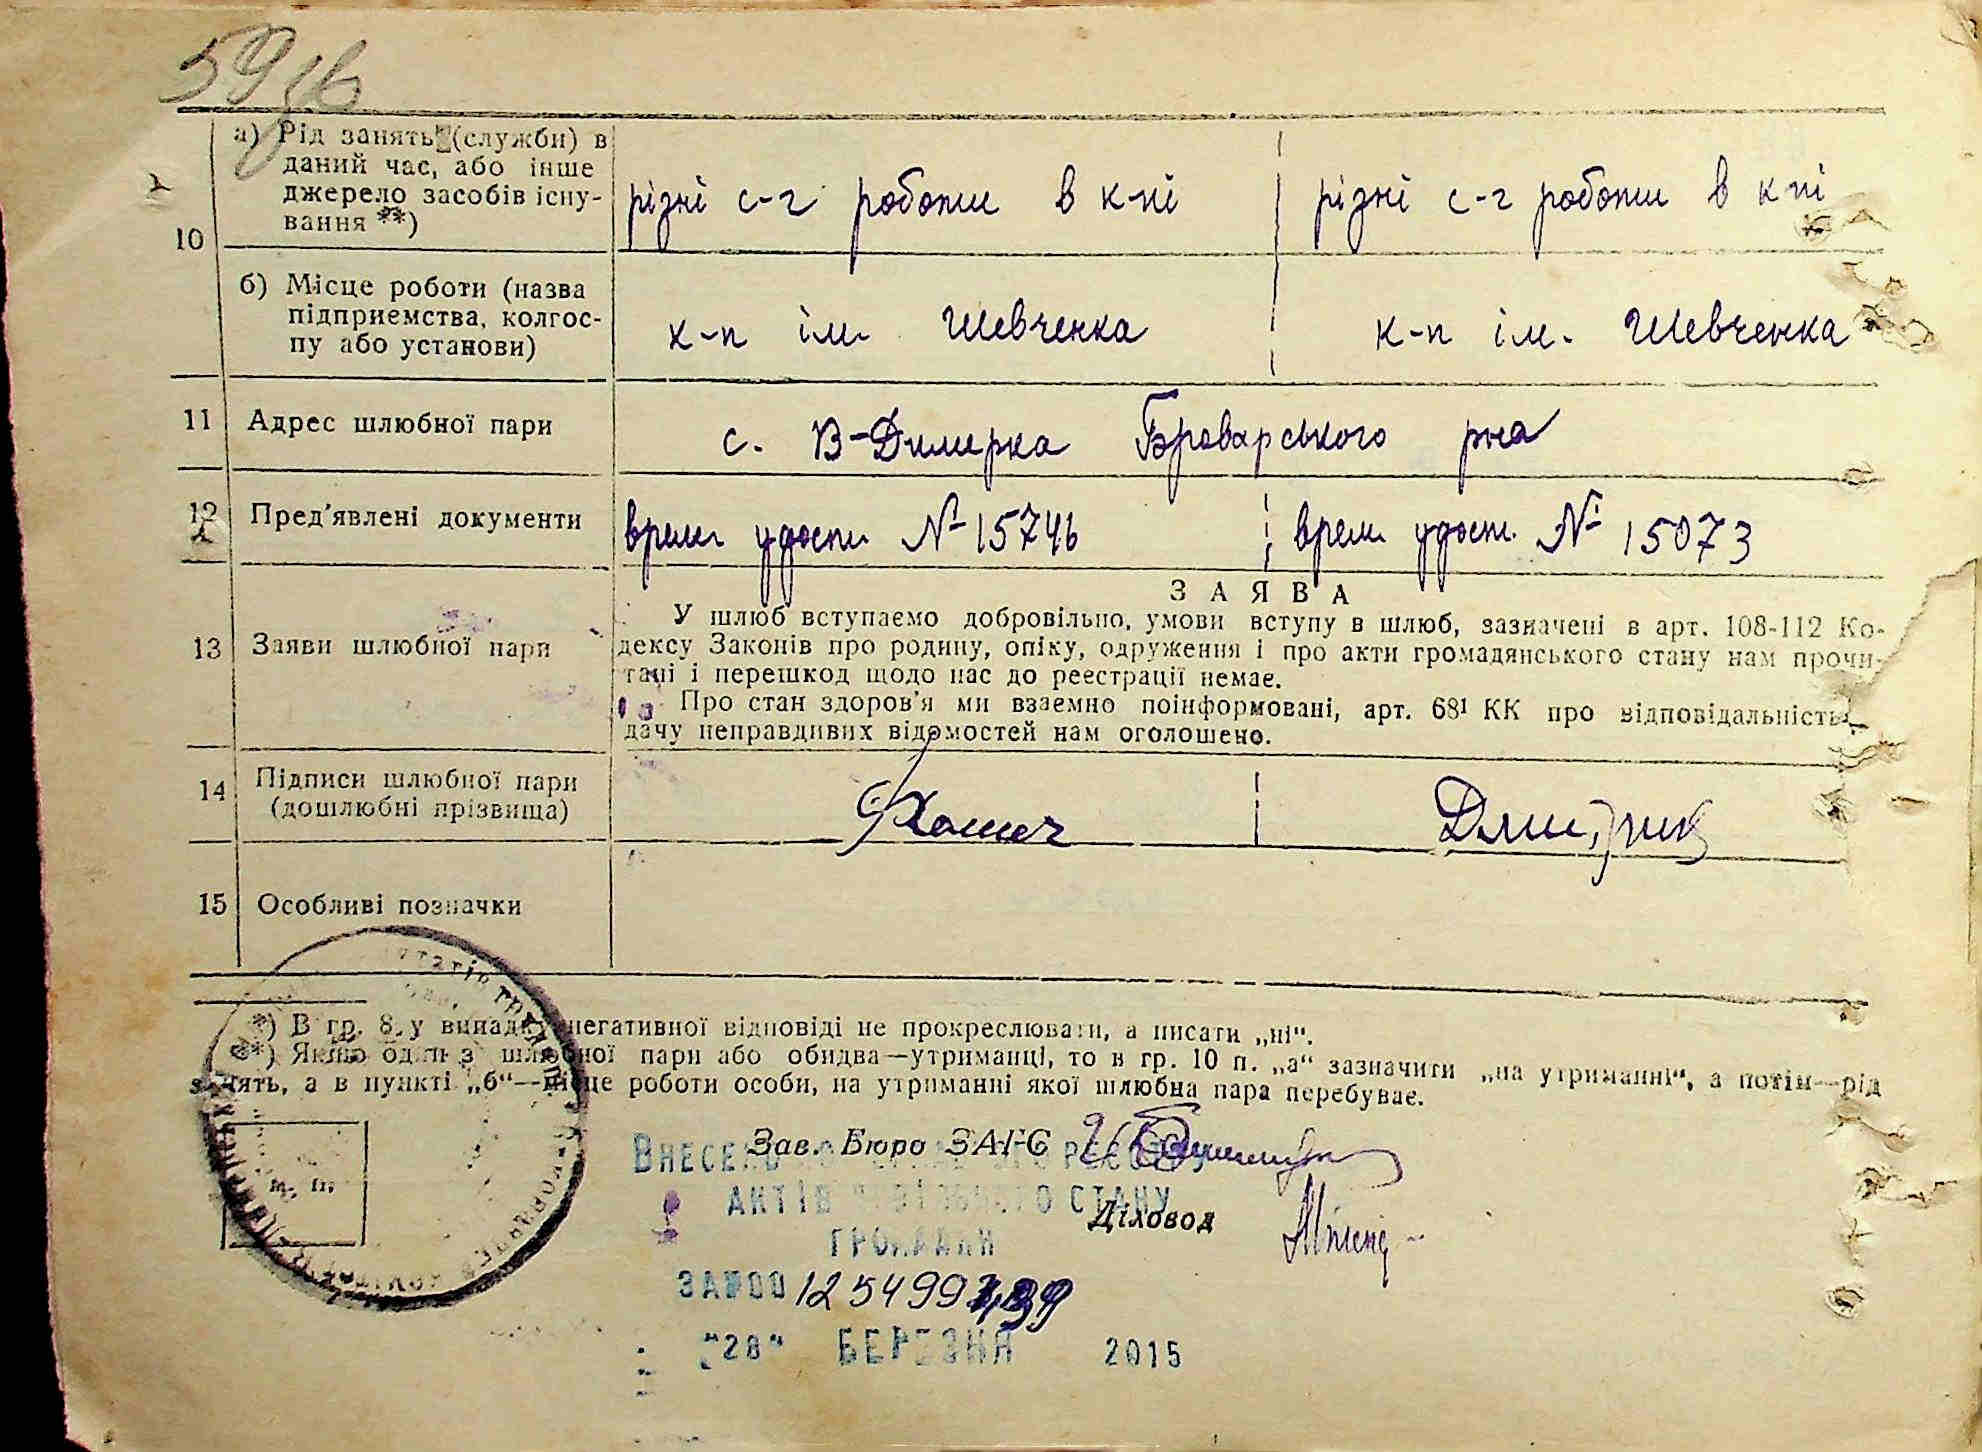 а) Рід занять (служби) в
даний час, або інше
джерело засобів існу-
вання **)
10
різні с-г роботи в к-пі
різні с-г роботи в к-пі
б) Місце роботи (назва
підприємства, колгос-
пу або установи)
к-п ім. Шевченка
к-п ім. Шевченка
11
Адрес шлюбної пари
с. В-Димерка Броварського рна
12
Пред'явлені документи
врем удост № 15746
врем. удост. № 15073
13
Заяви шлюбної пари
ЗАЯВА
У шлюб вступаємо добровільно, умови вступу в шлюб, зазначені в арт. 108-112 Ко-
дексу Законів про родину, опіку, одруження і про акти громадянського стану нам прочи-
тані і перешкод щодо нас до реєстрації немає.
Про стан здоров'я ми взаємно поінформовані, арт. 68¹ КК про відповідальність
дачу неправдивих відомостей нам оголошено.
14
Підписи шлюбної пари
(дошлюбні прізвища)
15
Особливі позначки
*) В гр. 8, у випадку негативної відповіді не прокреслювати, а писати „ні“.
**) Якщо один з шлюбної пари або обидва—утриманці, то в гр. 10 п. „а“ зазначити „на утриманні“, а потім—рід
занять, а в пункті „б“—місце роботи особи, на утриманні якої шлюбна пара перебуває.
Зав. Бюро ЗАГС
м. п.
АКТІВ ЦИВІЛЬНОГО СТАНУ
Діловод
ГРОМАДЯН
"28" БЕРЕЗНЯ 2015